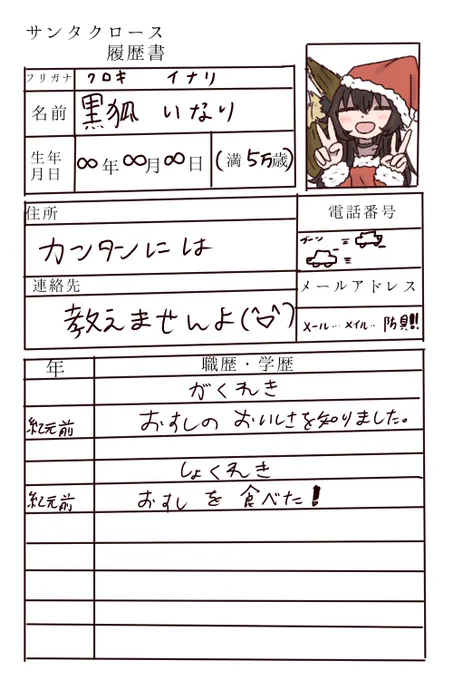 サンタクロース
履歴書
フリガナ クロキ イナリ
名前 黒狐 いなり
生年月日 ∞年∞月∞日 (満5万歳)
住所
カンタンには
電話番号
ブーン
連絡先
教えませんよ(^ڡ^)
メールアドレス
メール… メイル… 防具!!
年 職歴・学歴
がくれき
紀元前 おすしの おいしさを知りました。
しょくれき
紀元前 おすし を 食べた!